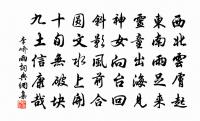 西北雲膚起
東南雨足來
靈童出海見
神女向台回
斜影風前合
圓文水上開
十旬無破塊
九土信康哉
李嶠雨詞典網集